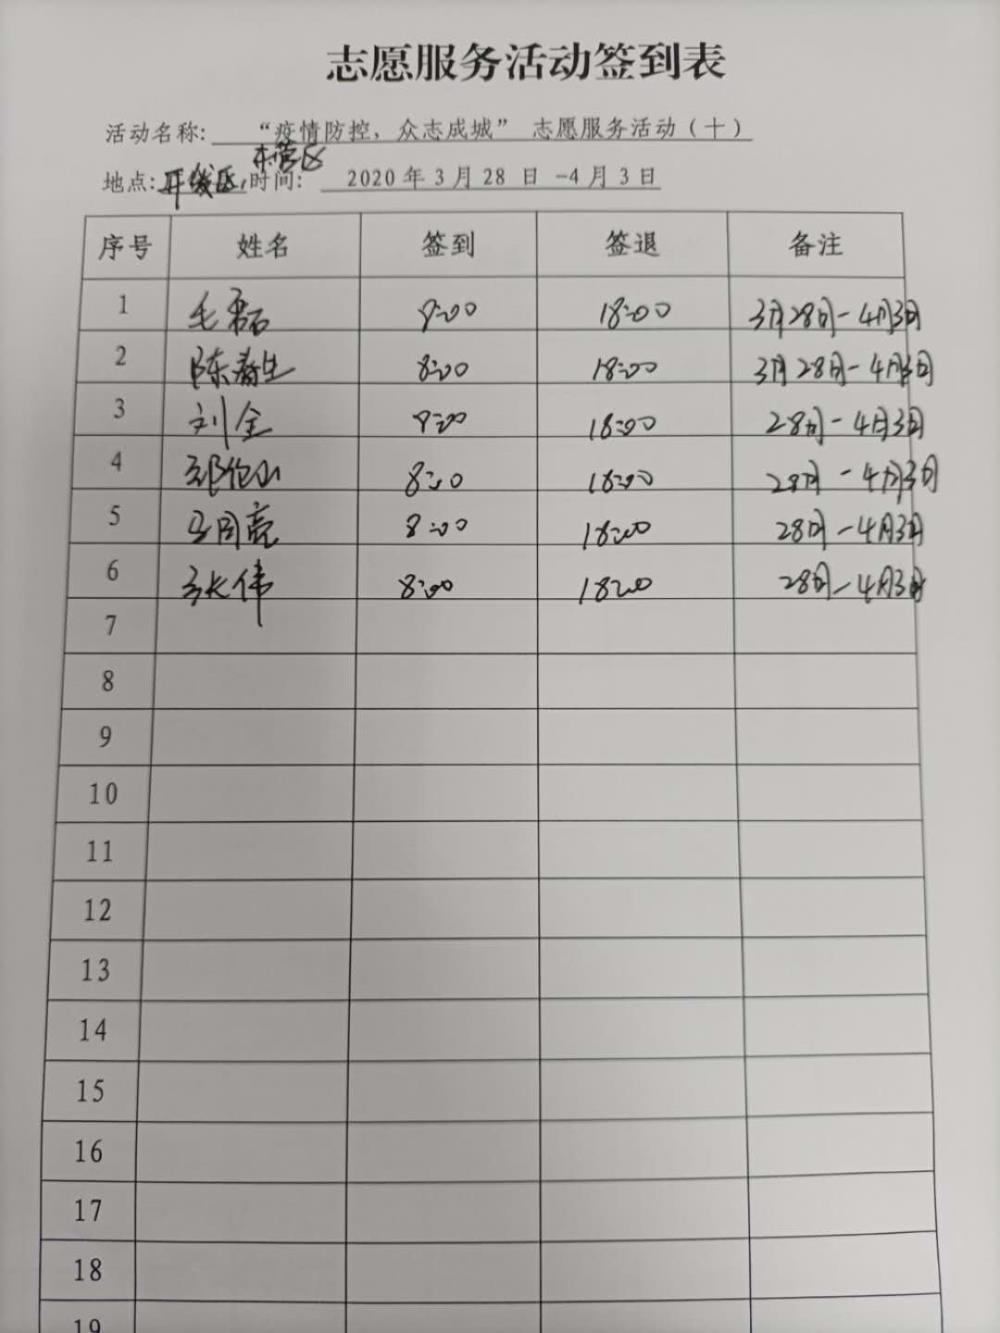 志愿服务活动签到表
活动名称: “疫情防控，众志成城” 志愿服务活动（十）
东营区
地点: 开发区, 时间: 2020年3月28日-4月3日
序号 姓名 签到 签退 备注
1 毛磊 8:00 18:00 3月28日-4月3日
2 陈春生 8:00 18:00 3月28日-4月3日
3 刘全 8:00 18:00 28日-4月3日
4 8:00 18:00 28日-4月3日
5 马同亮 8:00 18:00 28日-4月3日
6 张伟 8:00 18:00 28日-4月3日
7
8
9
10
11
12
13
14
15
16
17
18
19